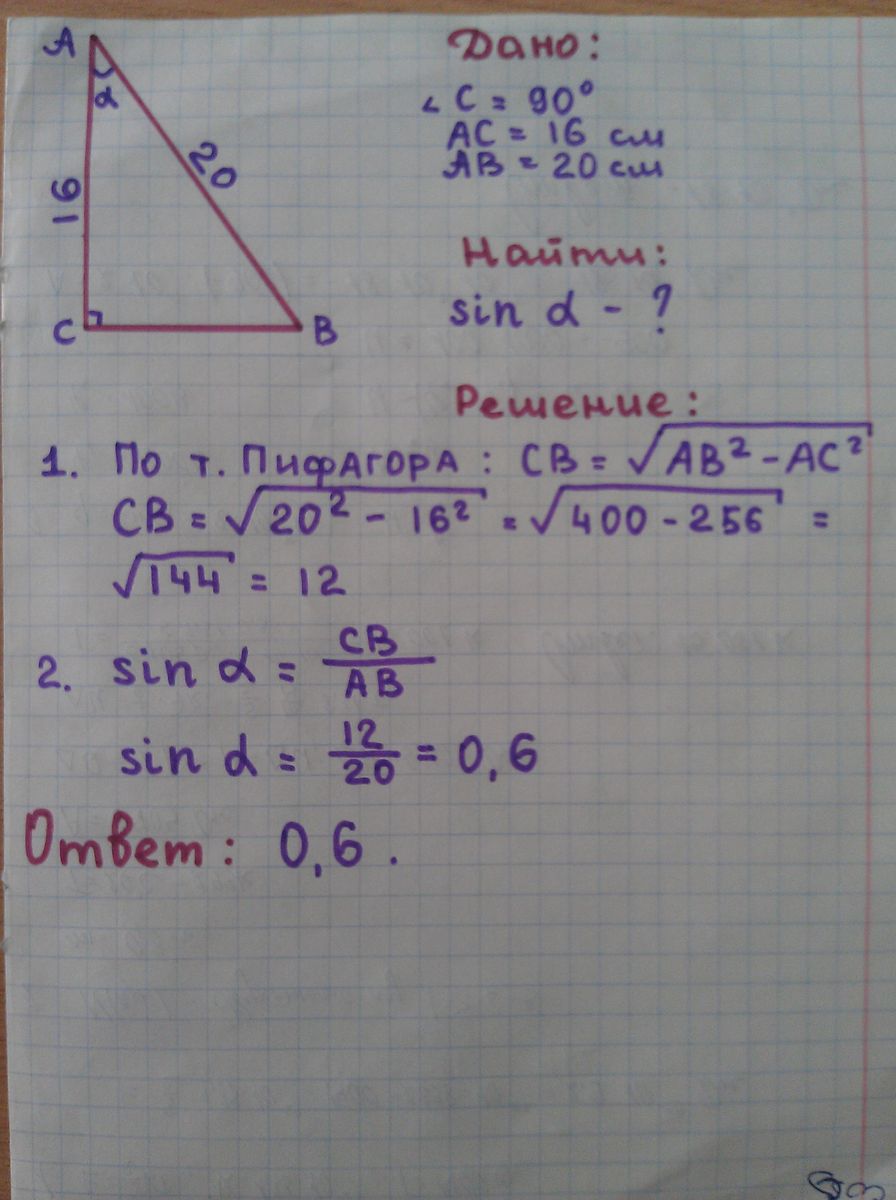 A
α
16
20
C
B
Дано:
∠ C = 90°
AC = 16 см
AB = 20 см
Найти:
sin α - ?
Решение:
1. По т. Пифагора: CB = √AB² - AC²
CB = √20² - 16² = √400 - 256 =
√144 = 12
2. sin α = CB/AB
sin α = 12/20 = 0,6
Ответ: 0,6.